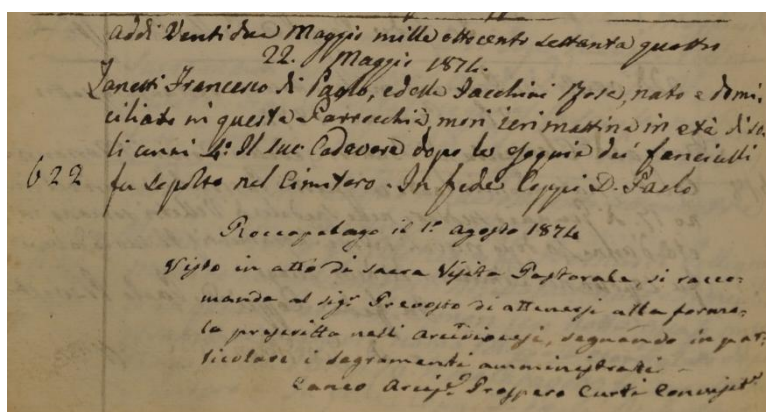 addi Ventidue Maggio mille ottocento settanta quattro
22. Maggio 1874.
Zanetti Francesco di Paolo, e della Jacchini Rosa, nato e domi=
ciliato in questa Parrocchia morì ieri mattina in età di so=
li anni 4. Il suo Cadavere dopo le esequie dei fanciulli
622 fu sepolto nel Cimitero. In fede Coppi D. Paolo
Roccapelago il 1º Agosto 1874
Visto in atto di sacra Visita Pastorale, si racco=
manda al sigr Prevosto di attenersi alla formo=
la prescritta nell' Arcidiocesi, segnando in par=
ticolare i sagramenti amministrati.
Arcip. Prospero Curti Convisit.